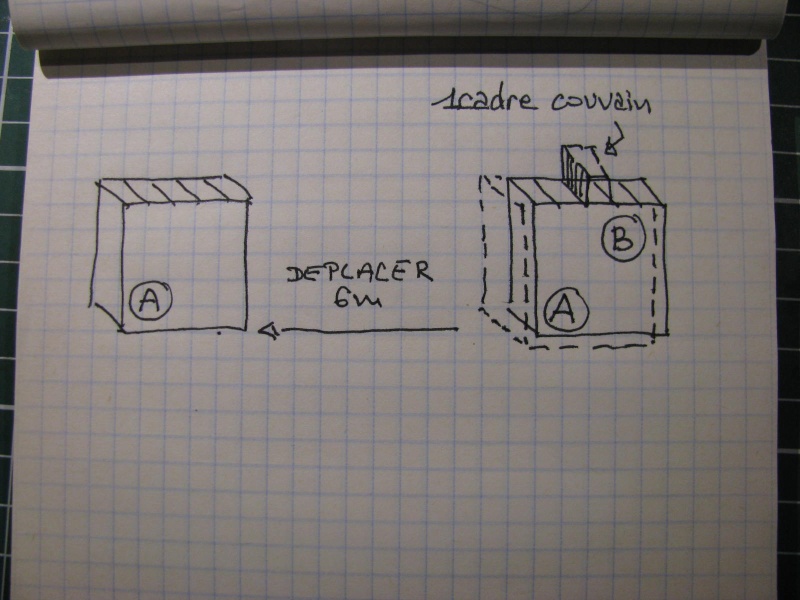 1cadre couvain
B
DEPLACER
6m
A
A